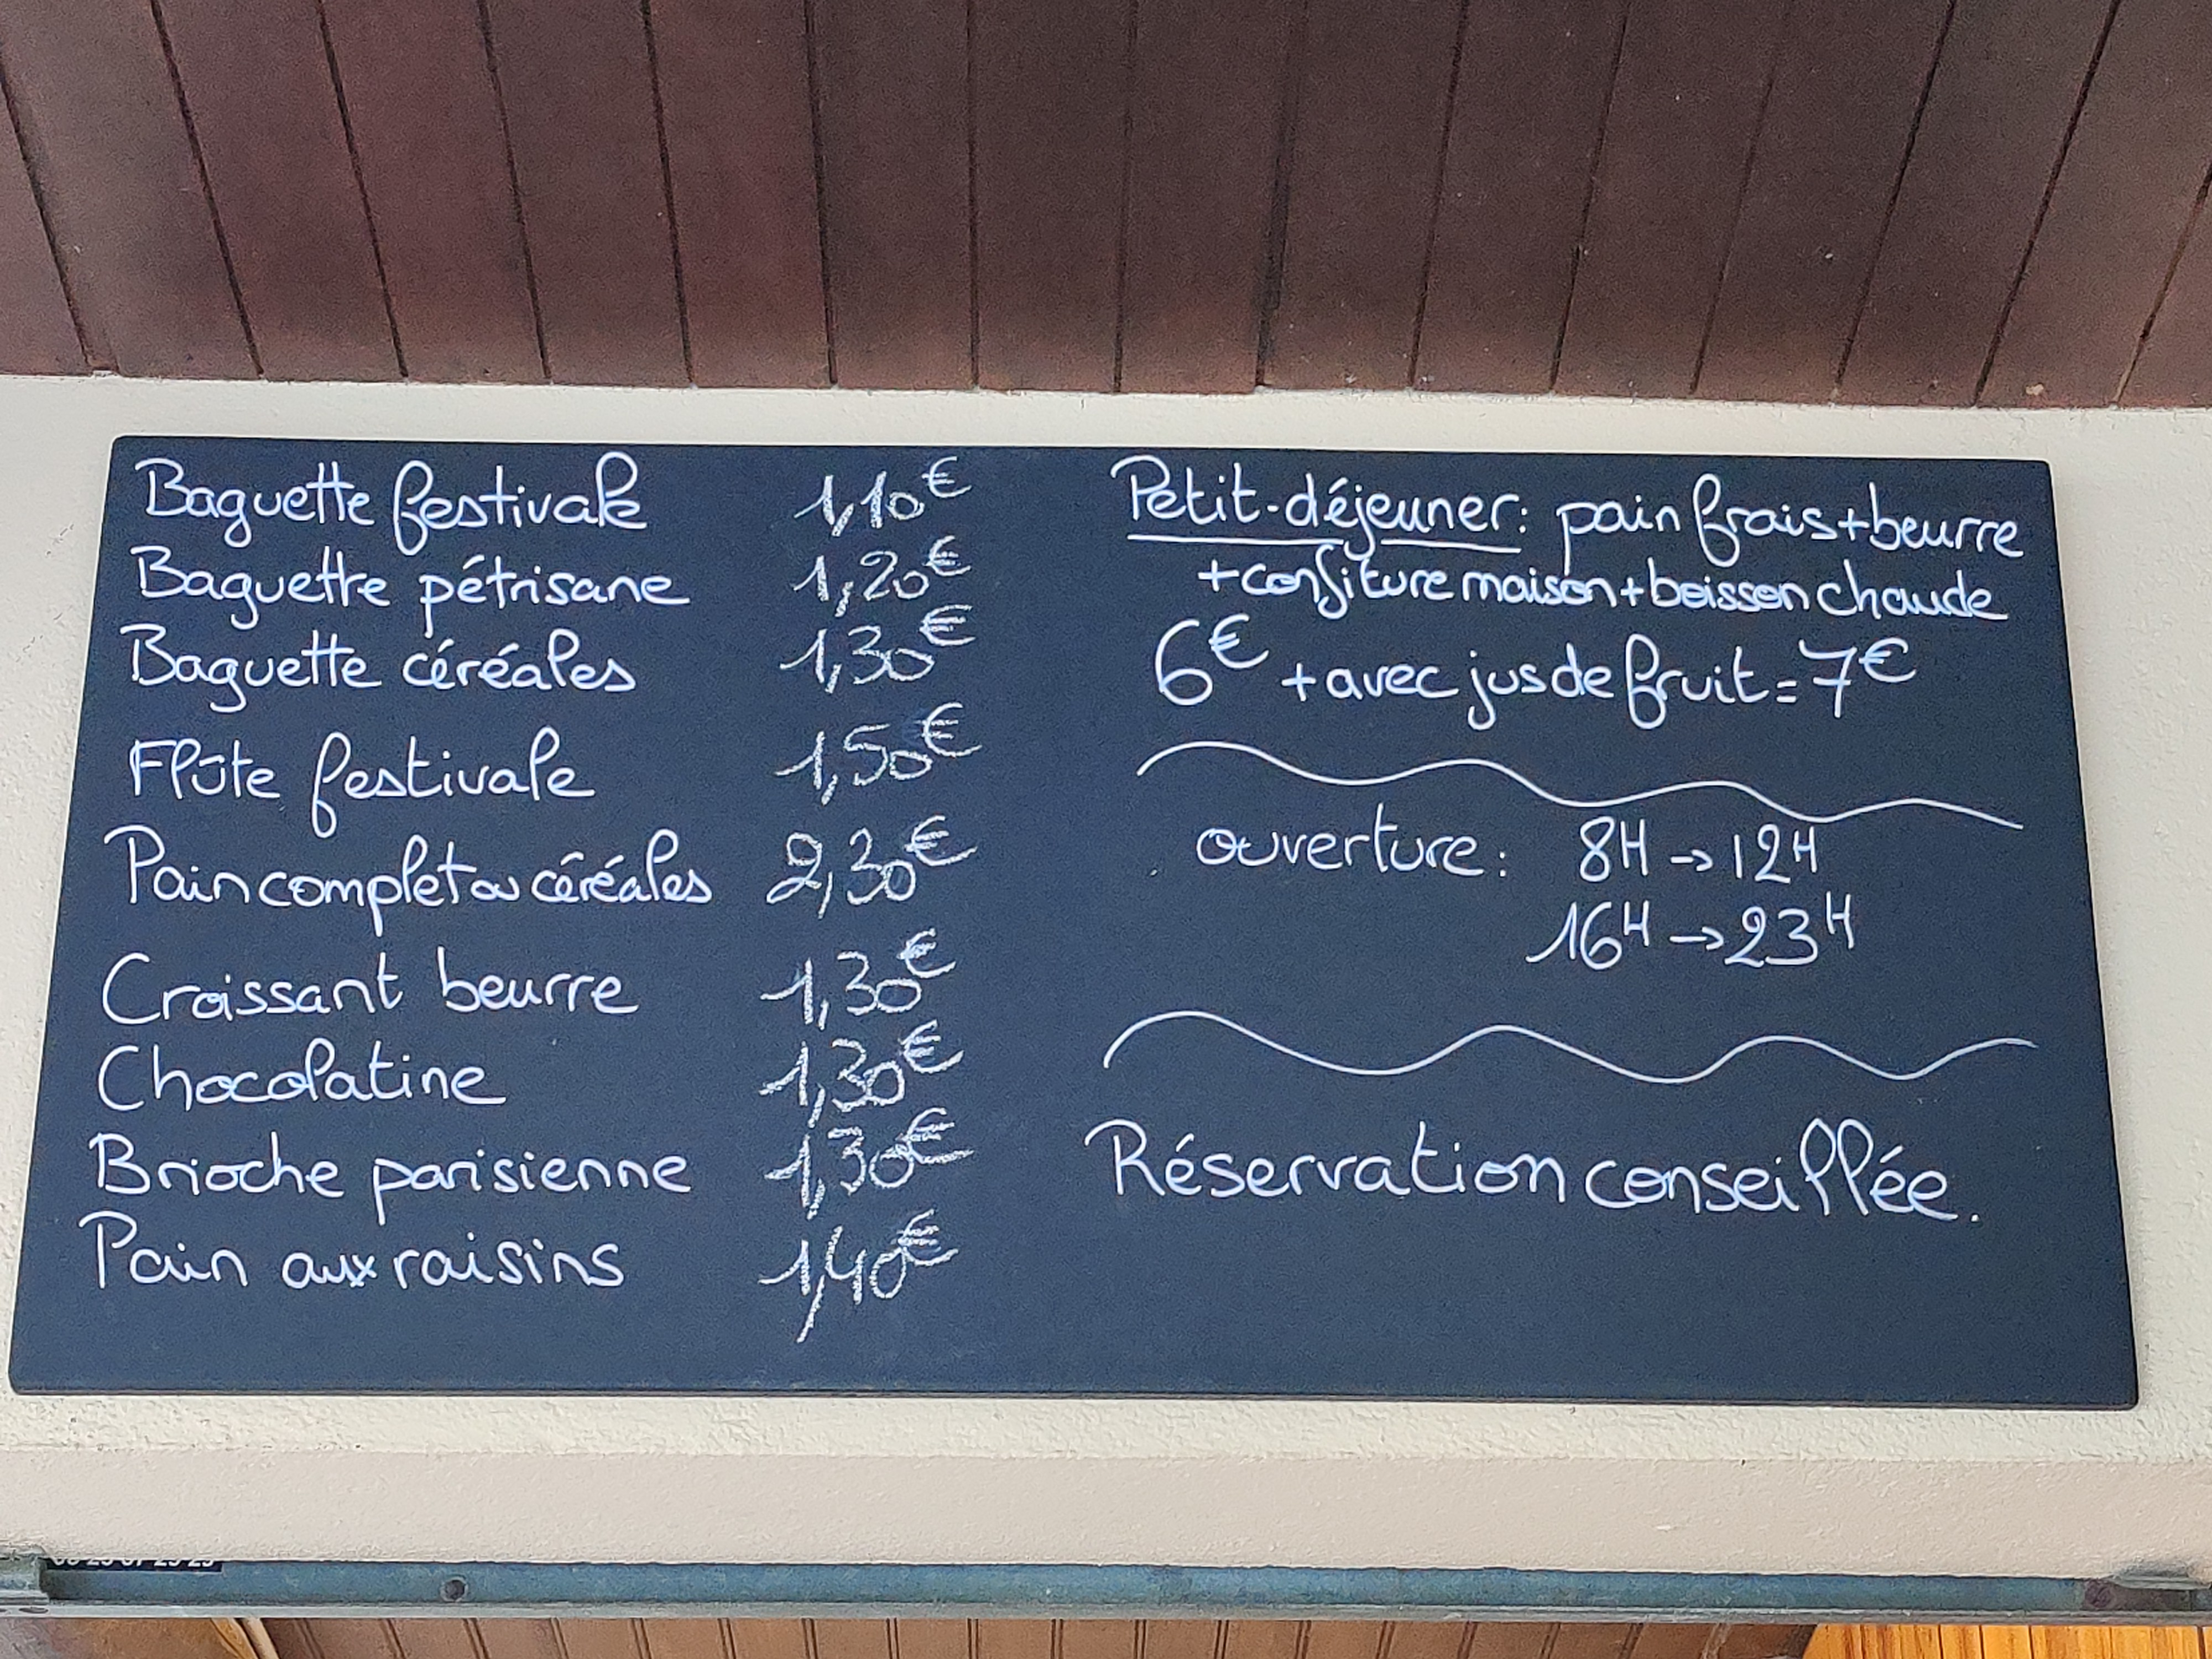 Baguette festivale 1,10€
Baguette pétrisane 1,20€
Baguette céréales 1,30€
Flûte festivale 1,50€
Pain complet ou céréales 2,30€
Croissant beurre 1,30€
Chocolatine 1,30€
Brioche parisienne 1,30€
Pain aux raisins 1,40€
Petit-déjeuner: pain frais+beurre
+confiture maison+boisson chaude
6€ +avec jus de fruit=7€
ouverture: 8H→12H
16H→23H
Réservation conseillée.